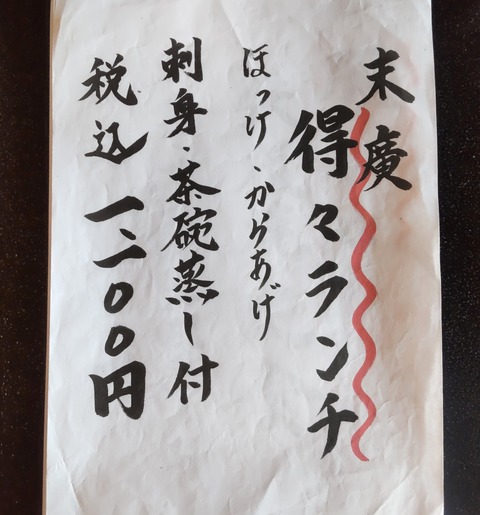 末廣
得々ランチ
ほっけ・からあげ
刺身・茶碗蒸し付
税込一二〇〇円